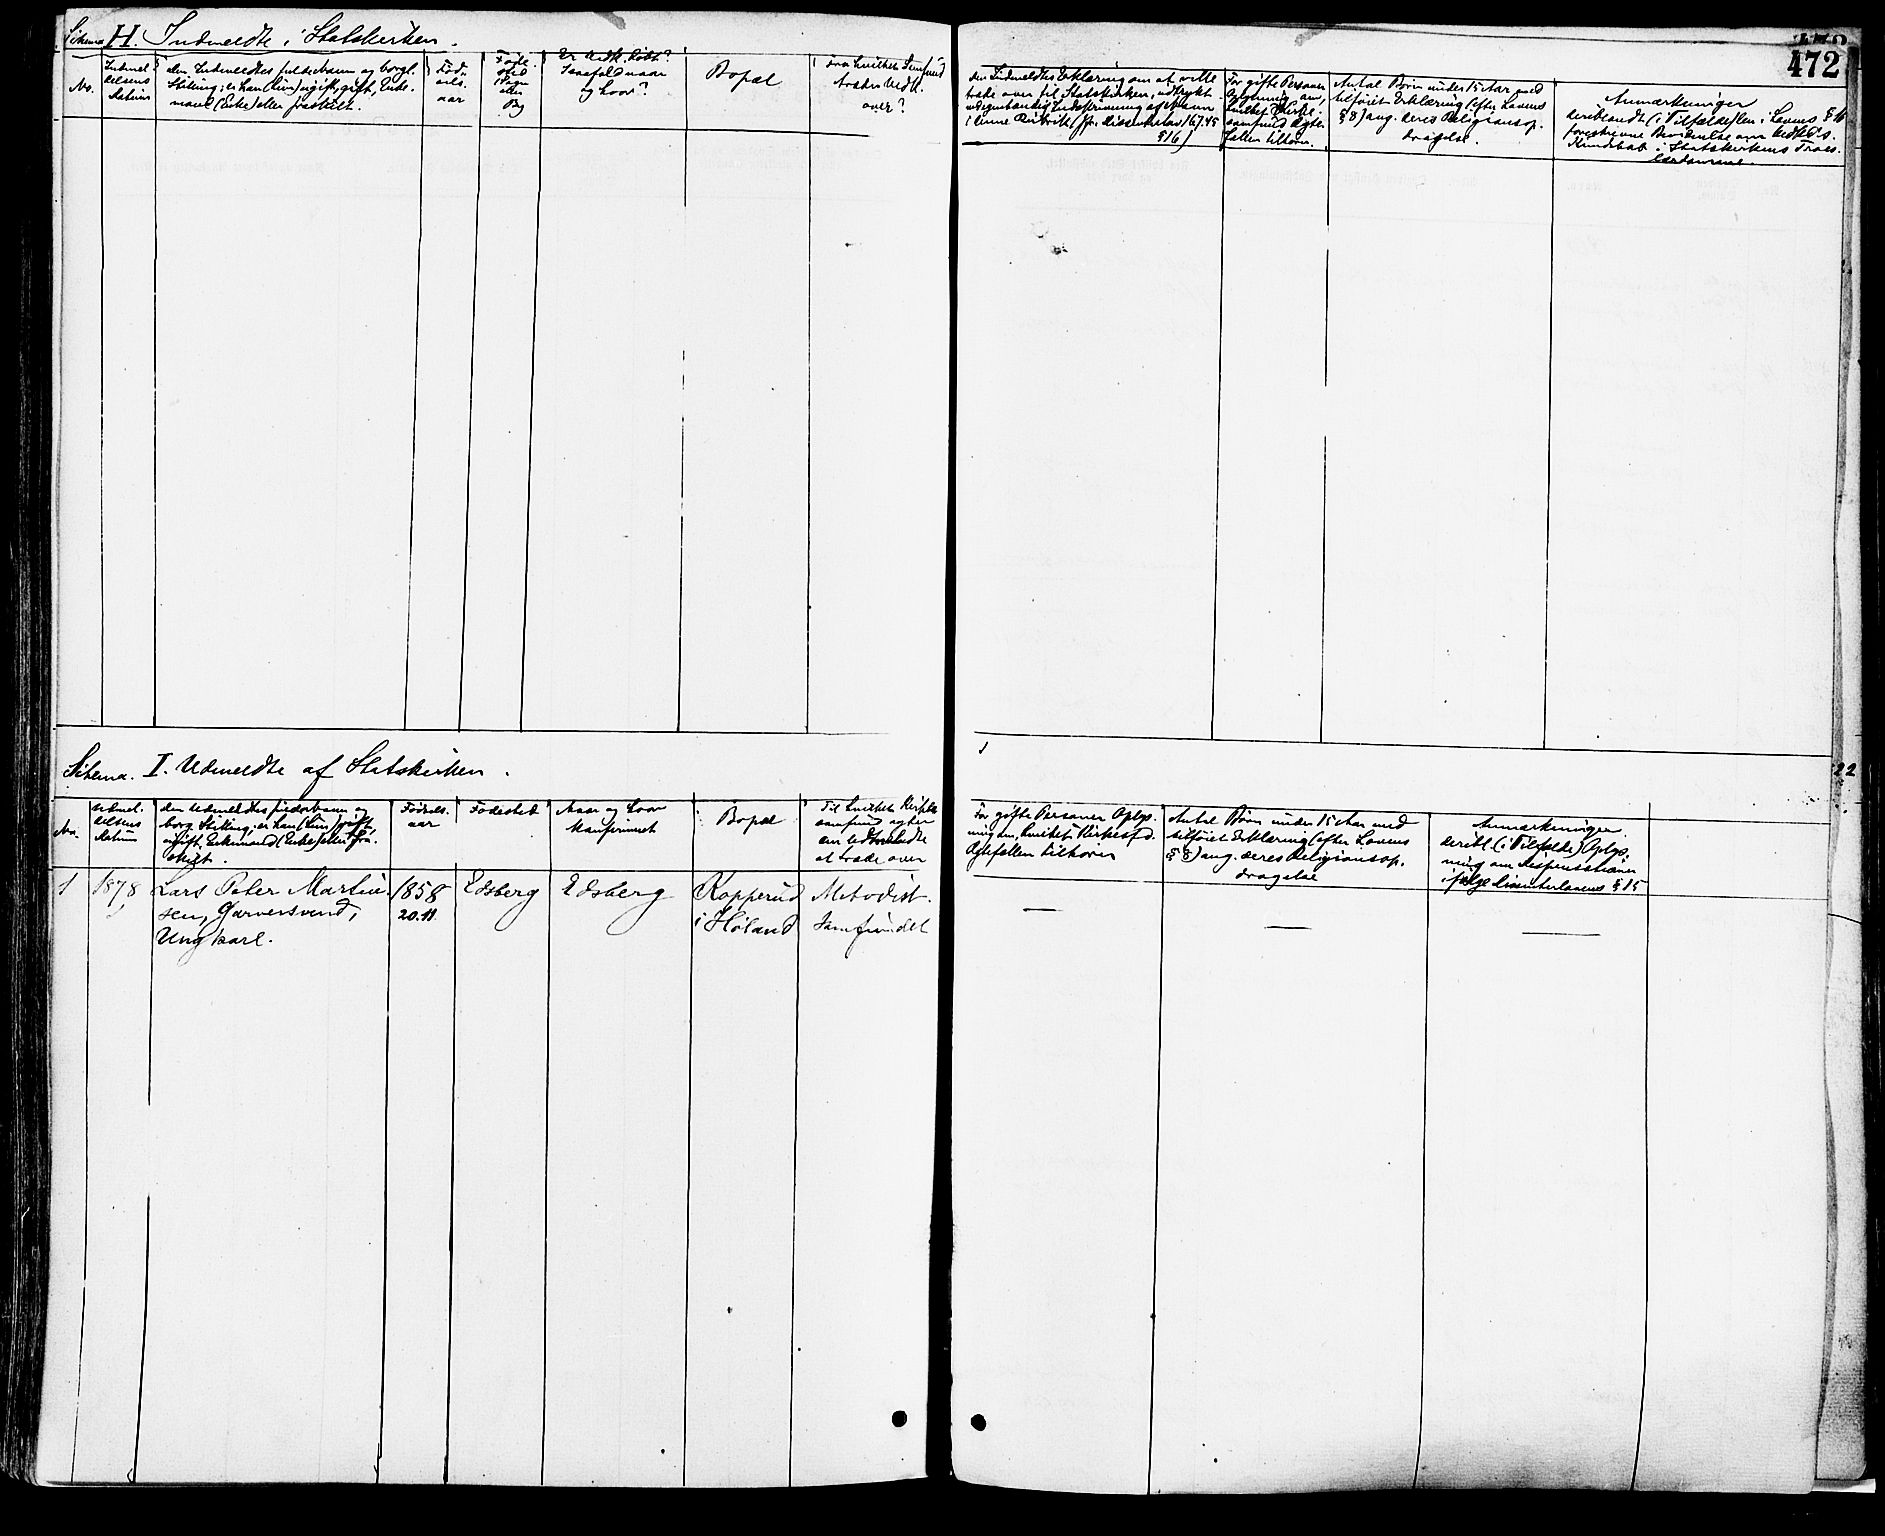 472
Schema H. Indmeldte i Statskirken.
No.
Indmel
delsens
Datum
den Indmeldtes fulde Navn og borgl.
Stilling; er han (hun) ugift, gift, Enke-
mand (Enke) eller fraskilt.
Føds
els.
aar
Føde
sted
Sogn
eller
By
Er Vedk. døbt?
I saafald naar
og hvor?
Bopæl
Fra hvilket Samfund
træder Vedk.
over?
den Indmeldtes Erklæring om at ville
træde over til Statskirken, udtrykt
ved egenhændig Indskrivning af Navn
i denne Rubrik (jfr. Dissenterlov 16/7.45
§ 16)
For gifte Personer
Oplysning om,
hvilket Kirke-
samfund Ægte-
fællen tilhører.
Antal Børn under 15 Aar med
tilføiet Erklæring (efter Lovens
§ 8) ang. deres Religionsop-
dragelse.
Anmærkninger
deriblandt (i Tilfælde) den i Lovens § 16
foreskrevne Bevidnelse om Vedk's.
Kundskab i Statskirkens Troes-
lærdomme.
Schema. I. Udmeldte af Statskirken.
No.
Udmel.
delsens
Datum
den Udmeldtes fulde Navn og
borg Stilling; er han (hun) gift,
ugift, Enkemand (Enke) eller fra-
skilt.
Fødsels.
aar
Fødested
Naar og hvor
Konfirmeret
Bopæl
Til hvilket Kirke
samfund agter
den Udmeldte
at træde over
For gifte Personer Oplys-
ning om, hvilket Kirkesfd.
Ægtefællen tilhører
Antal Børn under 15 Aar med
tilføiet Erklæring (efter Lovens
§ 8) ang. deres Religionsop.
dragelse
Anmærkninger.
deribl. (i Tilfælde) Oplys-
ning om Dispensationer
ifølge Dissenterlovens § 15
1
1878
Lars Peter Martin-
sen, Garversvend,
Ungkarl.
1858
20.11
Edsberg
Edsberg
Kopperud
i Høland
Metodist.
Samfundet